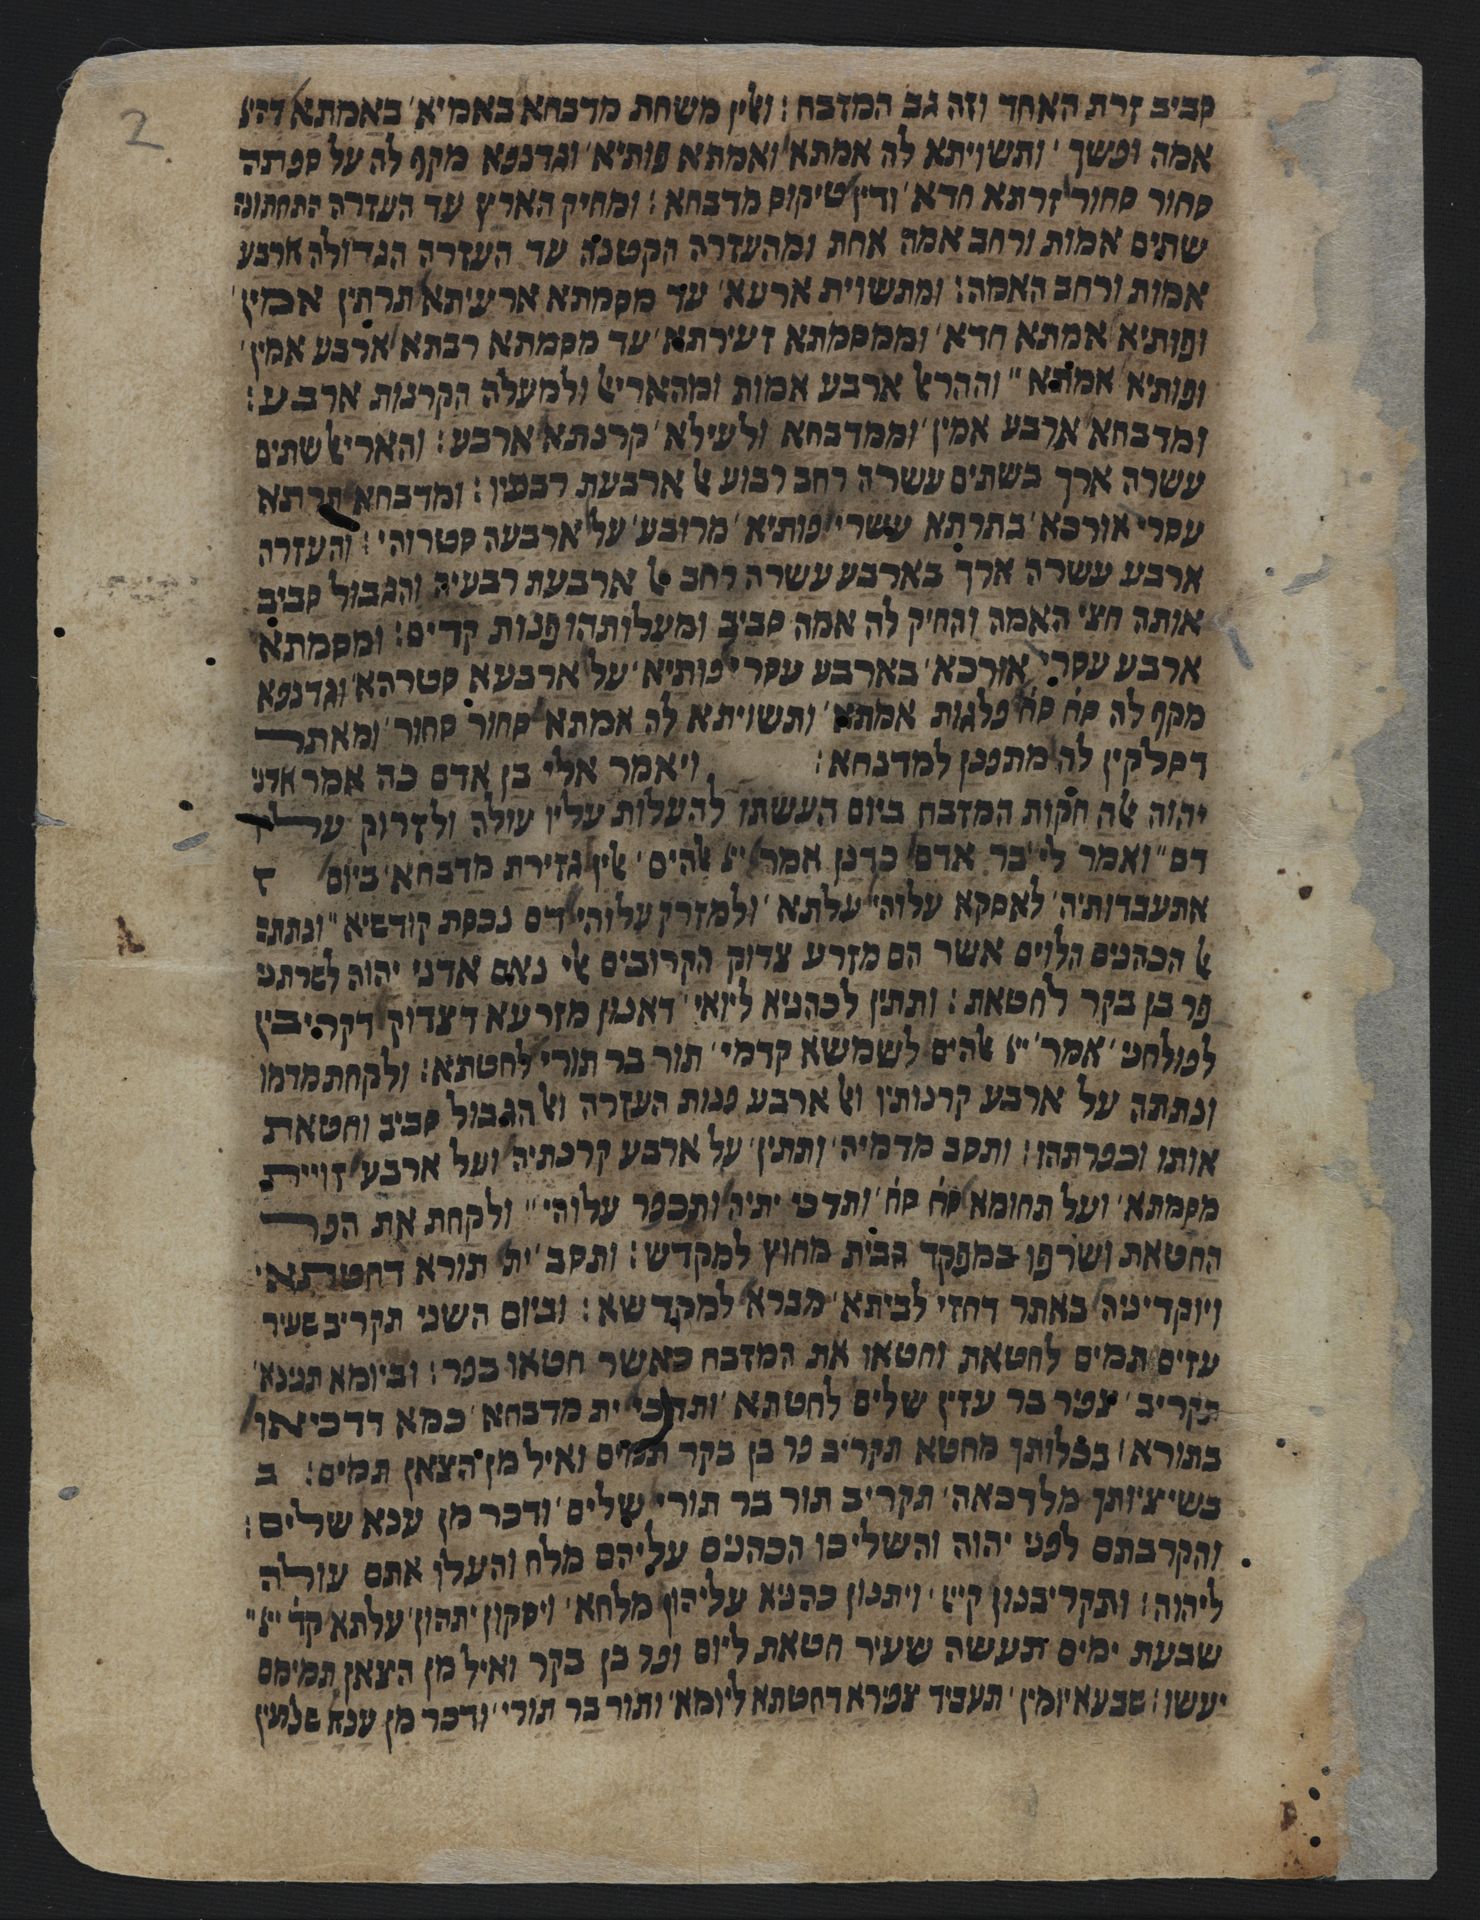 2
סביב זרת האחד וזה גב המזבח : ואלין משחת מדבחא באמיא באמתא דהיא
אמה ופשך ותשויתא לה אמתא ואמתא פותיא וגדנפא מקף לה על ספתה
סחור סחור זרתא חדא ודין טיקוס מדבחא : ומחיק הארץ עד העזרה התחתונה
שתים אמות ורחב אמה אחת ומהעזרה הקטנה עד העזרה הגדולה ארבע
אמות ורחב האמה : ומתשוית ארעא עד מסמתא ארעיתא תרתין אמין
ופותיא אמתא חדא וממסמתא זעירתא עד מסמתא רבתא ארבע אמין
ופותיא אמתא וההראל ארבע אמות ומהאריאל ולמעלה הקרנות ארבע :
ומדבחא ארבע אמין וממדבחא ולעילא קרנתא ארבע : והאריאל שתים
עשרה ארך בשתים עשרה רחב רבוע אל ארבעת רבעיו : ומדבחא תרתא
עסרי אורכא בתרתא עשרי פותיא מרובע על ארבעה סטרוהי : והעזרה
ארבע עשרה ארך בארבע עשרה רחב אל ארבעת רבעיה והגבול סביב
אותה חצי האמה והחיק לה אמה סביב ומעלותהו פנות קדים : ומסמתא
ארבע עסרי אורכא בארבע עסרי פותיא על ארבעא סטרהא וגדנפא
מקף לה סח סח פלגות אמתא ותשויתא לה אמתא סחור סחור ומאתר
דסלקין לה מתפנן למדנחא : ויאמר אלי בן אדם כה אמר אדני
יהוה אלה חקות המזבח ביום העשתו להעלות עליו עולה ולזרוק עליו
דם ואמר לי בר אדם כדנן אמר ייי אלהים אלין גזירת מדבחא ביום
אתעבדותיה לאסקא עלוהי עלתא ולמזרק עלוהי דם נכסת קודשיא ונתתה
אל הכהנים הלוים אשר הם מזרע צדוק הקרובים אלי נאם אדני יהוה לשרתני
פר בן בקר לחטאת : ותתין לכהניא ליואי דאנון מזרעא דצדוק דקריבין
לפולחני אמר ייי אלהים לשמשא קדמי תור בר תורי לחטתא : ולקחת מדמו
ונתתה על ארבע קרנותיו ואל ארבע פנות העזרה ואל הגבול סביב וחטאת
אותו וכפרתהו : ותסב מדמיה ותתין על ארבע קרנתיה ועל ארבע זויית
מסמתא ועל תחומא סח סח ותדכי יתיה ותכפר עלוהי ולקחת את הפר
החטאת ושרפו במפקד הבית מחוץ למקדש : ותסב ית תורא דחטתא
ויוקדיניה באתר דחזי לביתא מברא למקדשא : וביום השני תקריב שעיר
עזים תמים לחטאת וחטאו את המזבח כאשר חטאו בפר : וביומא תנינא
תקריב צפיר בר עזין שלים לחטתא ותדכי ית מדבחא כמא דדכיאו
בתורא : בכלותך מחטא תקריב פר בן בקר תמים ואיל מן הצאן תמים : ב
בשיציותך מלדכאה תקריב תור בר תורי שלים ודכר מן ענא שלים :
והקרבתם לפני יהוה והשליכו הכהנים עליהם מלח והעלו אתם עולה
ליהוה : ותקריבנון קייי ויתנון כהניא עליהון מלחא ויסקון יתהון עלתא קד ייי
שבעת ימים תעשה שעיר חטאת ליום ופר בן בקר ואיל מן הצאן תמימם
יעשו : שבעא יומין תעביד צפירא דחטתא ליומא ותור בר תורי ודכר מן ענא שלמין